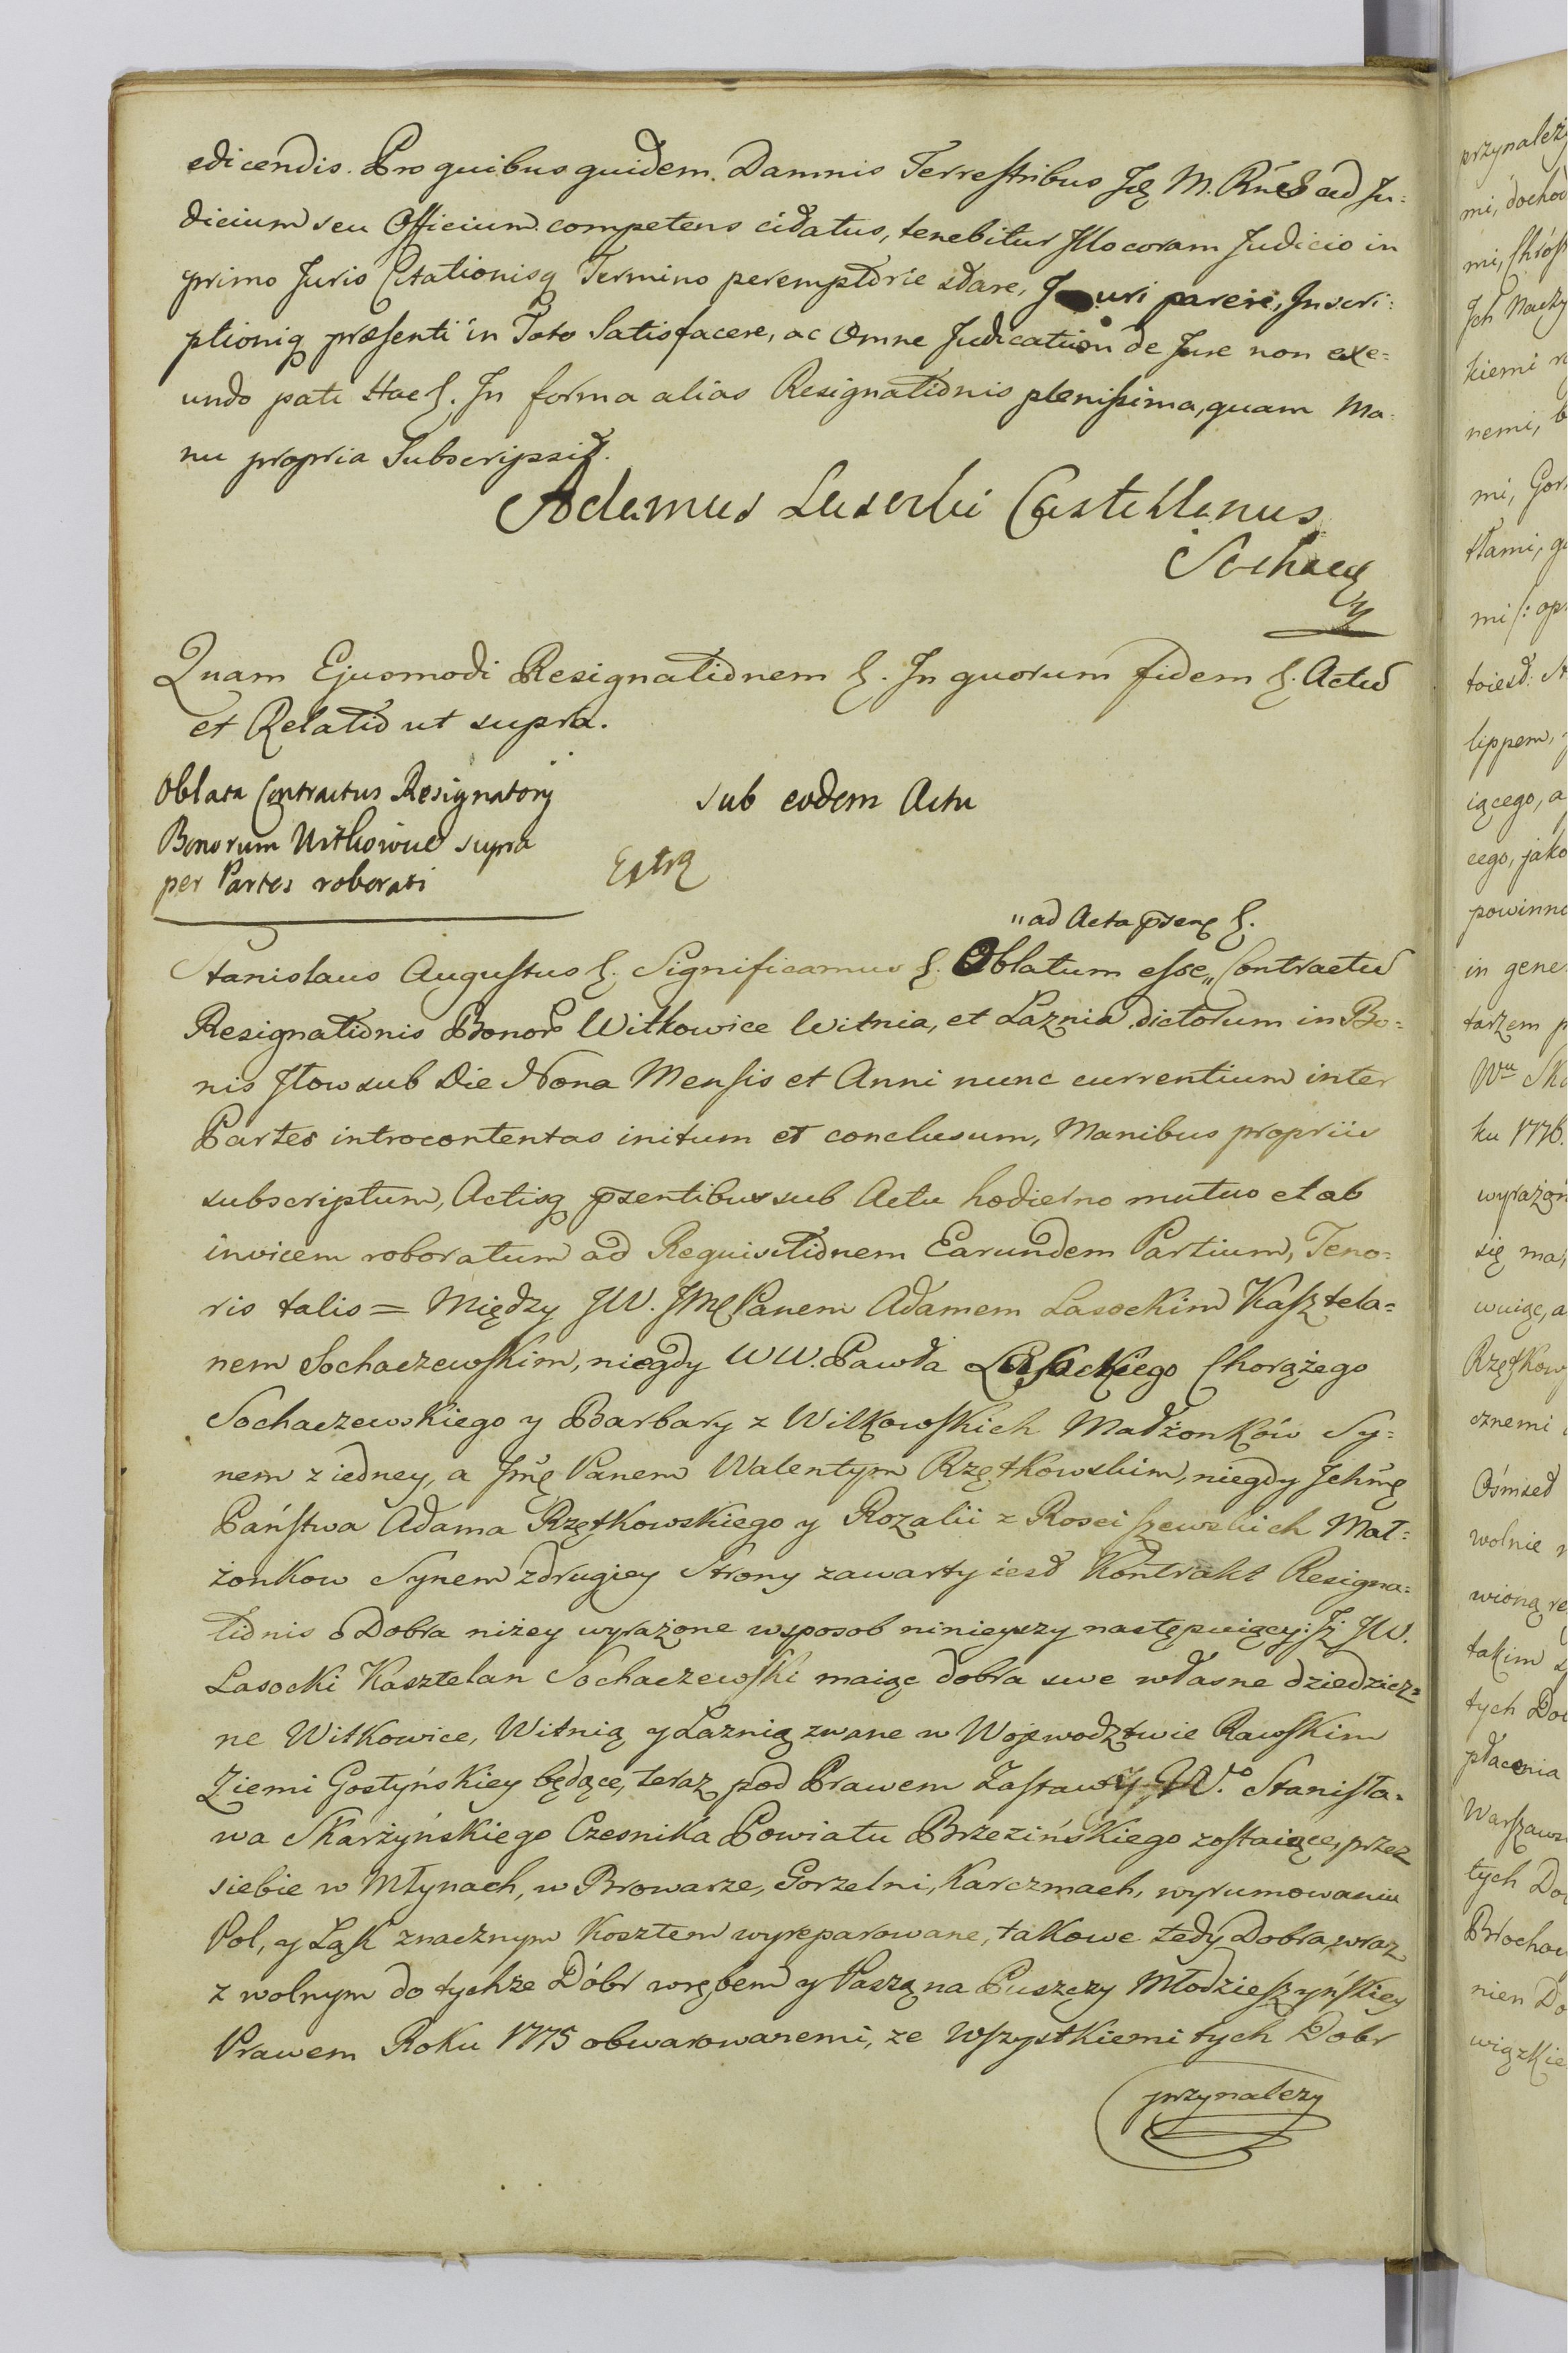 edicendis. Pro quibus quidem Damnis Terrestribus ad Ju=
dicium seu Officium competens citatus, tenebitur Illo coram Judicio in
primo Juris Citationisq Termino peremptorie stare, Juri parere, Inscri:
ptioniq præsenti in Toto Satisfacere, ac Omne Judicatum de Jure non exe=
undo pati Hac. In forma alias Resignationis plenissima, quam Ma:
nu propria Subscripsit.
Adamus Lasocki Castellanus
Sochacz
Quam Ejusmodi Resignationem &. In quorum fidem &. Actus
et Relatio ut supra.
Oblata Contractus Resignatorij
Bonorum Witkowice supra
per Partes roborati
sub eodem Actu
Extra
"ad Acta psenę &.
Stanislaus Augustus &. Significamus &. Oblatum esse " Contractus
Resignationis Bonor Witkowice Witnia, et Łaznia dictorum in Bo=
nis Iłow sub Die Nona Mensis et Anni nunc currentium inter
Partes introcontentas initum et conclusum, Manibus propriis
subscriptum, Actisq psentibus sub Actu hodierno mutuo et ab
invicem roboratum ad Requisitionem Earundem Partium, Teno=
ris talis = Między JW. JMę Panem Adamem Lasockim Kasztela=
nem Sochaczewskim, niegdy WW. Pawła Lasockiego Chorążego
Sochaczewskiego y Barbary z Wilkowskich Małżonków Sy=
nem z iedney, a Jmę Panem Walentym Rzętkowskim, niegdy Jchmę
Państwa Adama Rzętkowskiego y Rozalii z Rosciszewskich Mał=
żonkow Synem z drugiey Strony zawarty iest Kontrakt Resigna=
tionis o Dobra niżey wyrażone w sposob ninieyszy następuiący: Jż JW.
Lasocki Kasztelan Sochaczewski maiąc dobra swe własne dziedzicz=
ne Witkowice, Witnią y Łaznią zwane w Wojewodztwie Rawskim
Ziemi Gostyńskiey będące, teraz pod Prawem Zastawy W.o Stanisła=
wa Skarżyńskiego Czesnika Powiatu Brzezińskiego zostaiące, przez
siebie w Młynach, w Browarze, Gorzelni, Karczmach, wyrumowaniu
Pol, y Łąk znacznym Kosztem wyreparowane, takowe tedy Dobra, wraz
z wolnym do tychże Dóbr wrębem y Paszą na Puszczy Młodzieszyńskiey
Prawem Roku 1775 obwarowanemi, ze Wszystkiemi tych Dobr
przynalezy
przynależy
mi, dochod
mi,
Jch
kiemi
nemi,
mi, Gor
tłami,
mi /:
toiesd:
lippem,
iącego, a
cego, jako
powinno
in gene
tarzem p
Wu Ska
ku 1776.
wyrażon
się ma,
wuiąc, a
Rzętkow
cznemi
Ośmset
wolnie
wioną re
takim
tych Dob
płacenia
Warszaws
tych Do
Brochow
nien Do
wiązkie